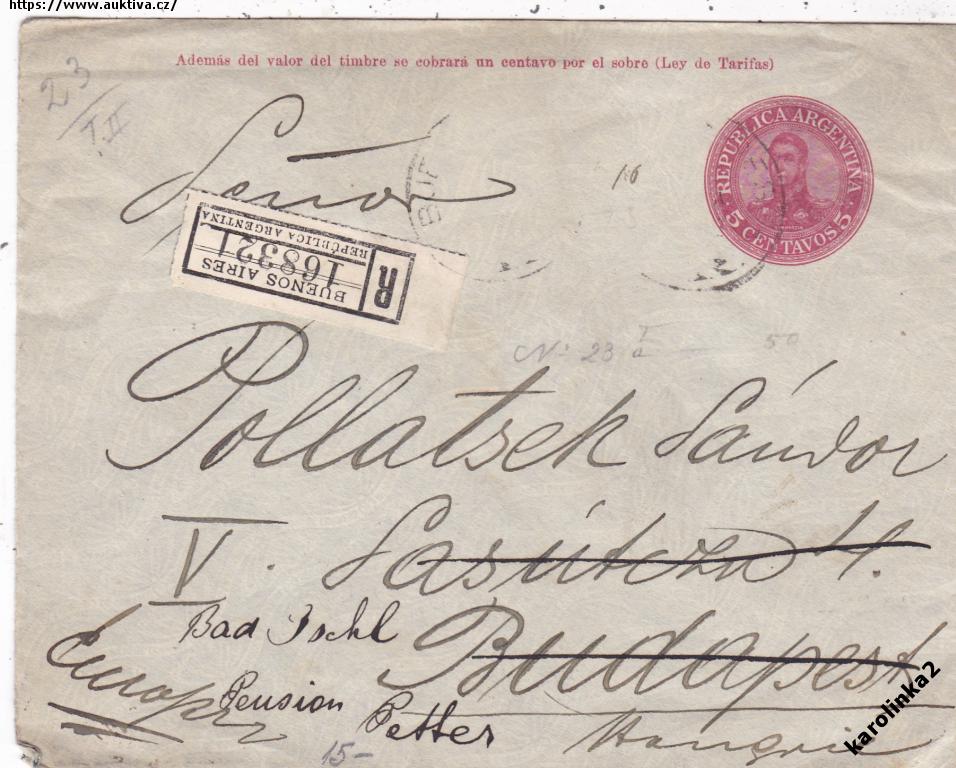 https://www.auktiva.cz/
Además del valor del timbre se cobrará un centavo por el sobre (Ley de Tarifas)
23
T.II
REPUBLICA ARGENTINA
5 CENTAVOS 5
Señor
BUE
R
BUENOS AIRES
168321
REPÚBLICA ARGENTINA
No 23 I a — 50
Pollatsek Sándor
V. Sasútcza 4.
Bad Ischl
Budapest
Europa
Pension Petter
Hongrie
15-
karolinka2